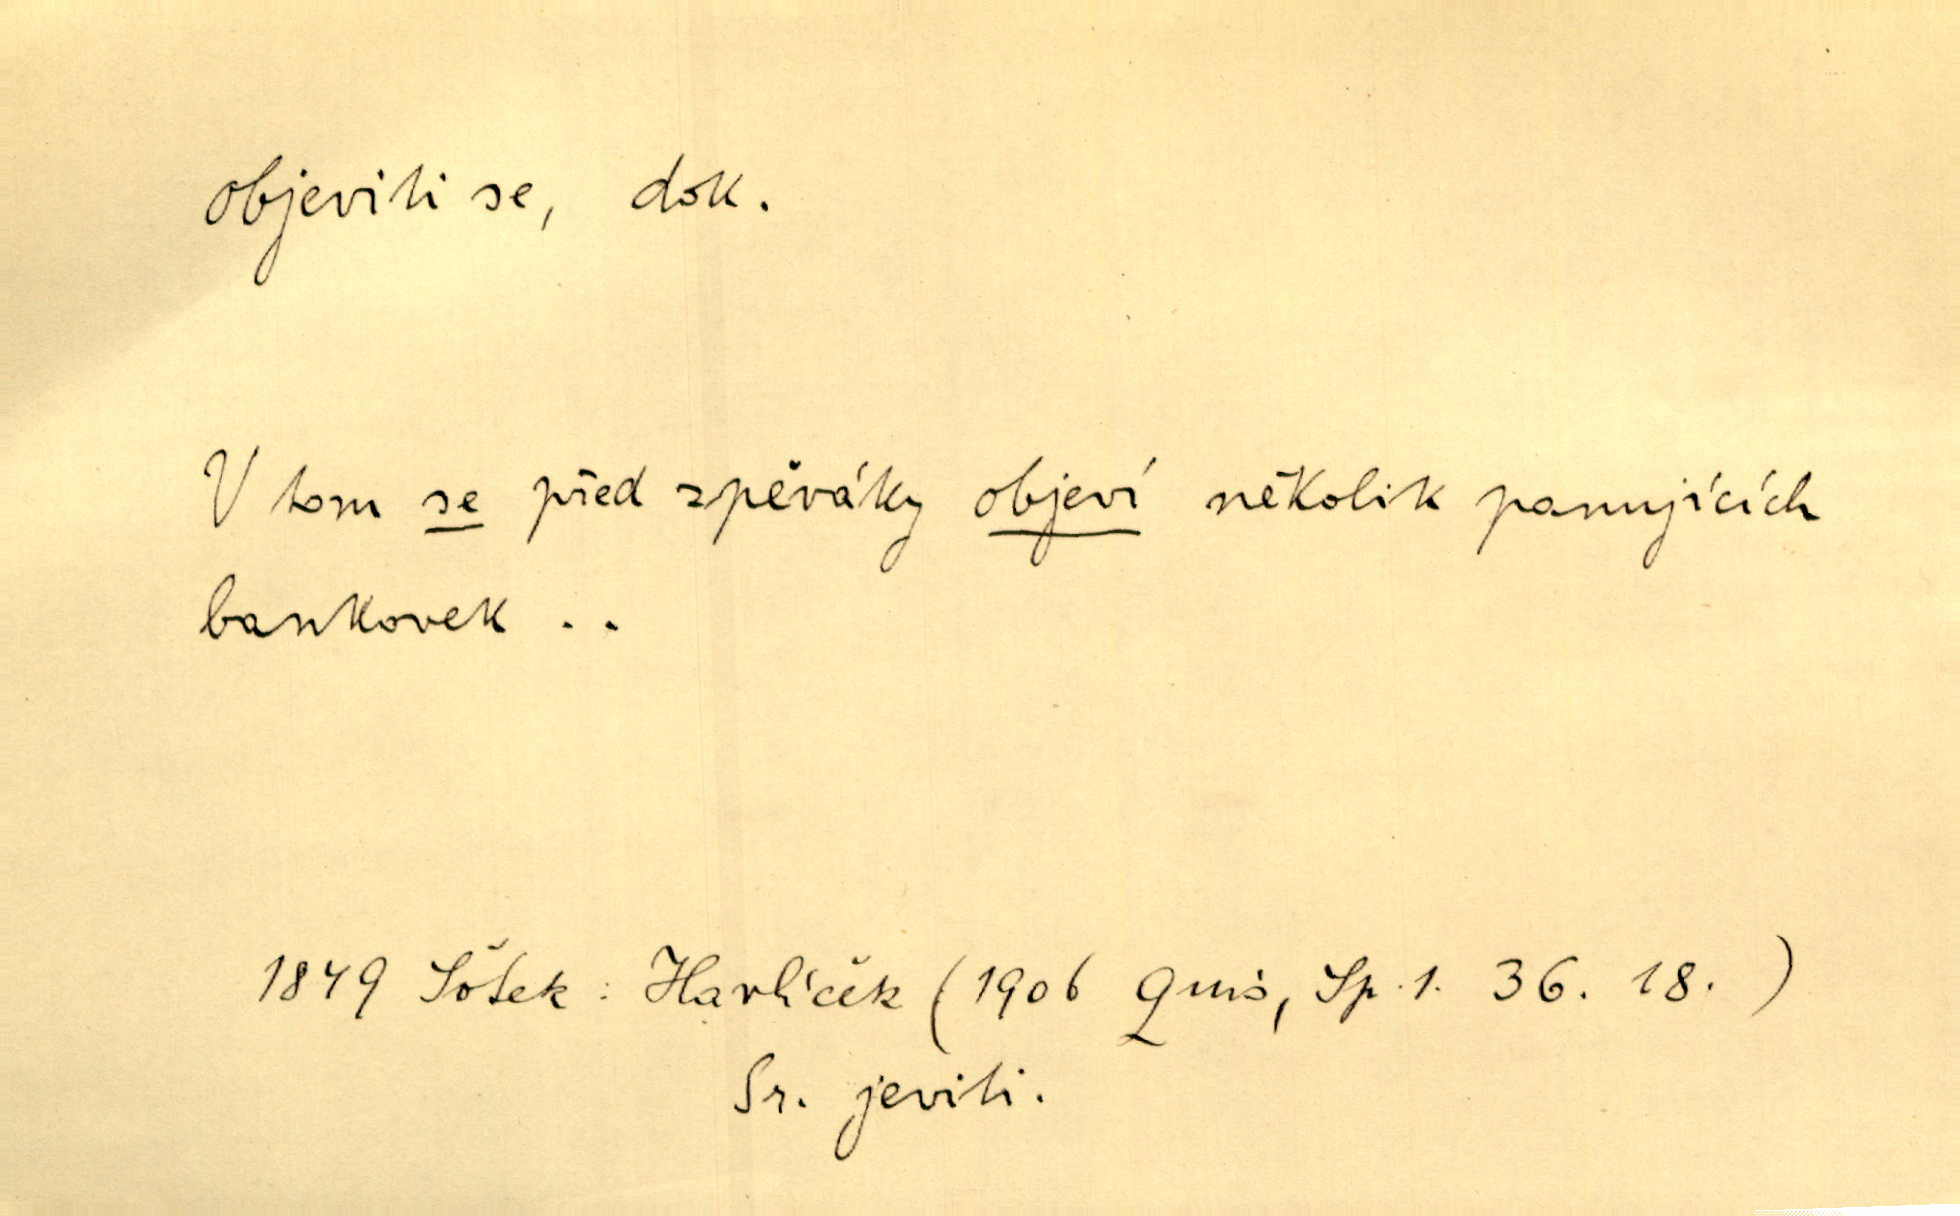 objeviti se, dok.
V tom se před zpěváky objeví několik panujících
bankovek ..
1849 Šotek : Havlíček (1906 Quis, Sp. 1. 36. 18. )
Sr. jeviti.